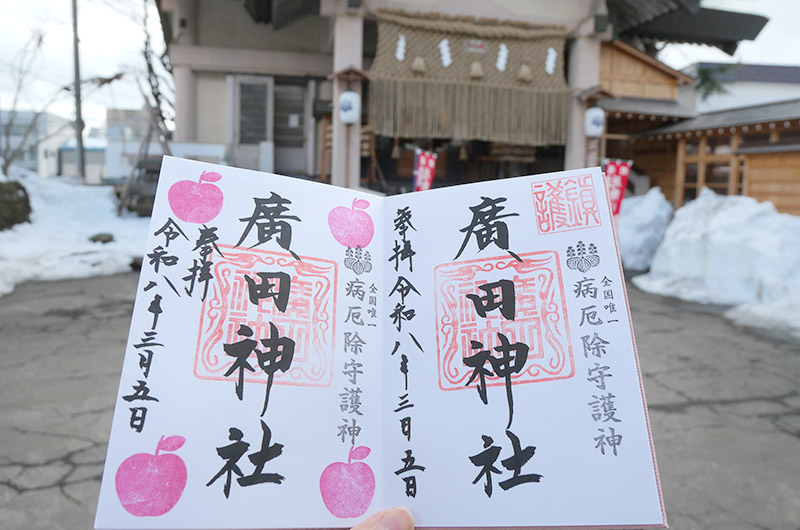 鎮護
奉拝
令和八年三月五日
全国唯一
病厄除守護神
廣田神社
全国唯一
病厄除守護神
廣田神社
奉拝
令和八年三月五日